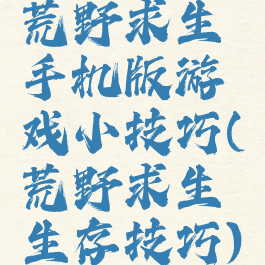 荒野求生
手机版游
戏小技巧(
荒野求生
生存技巧)